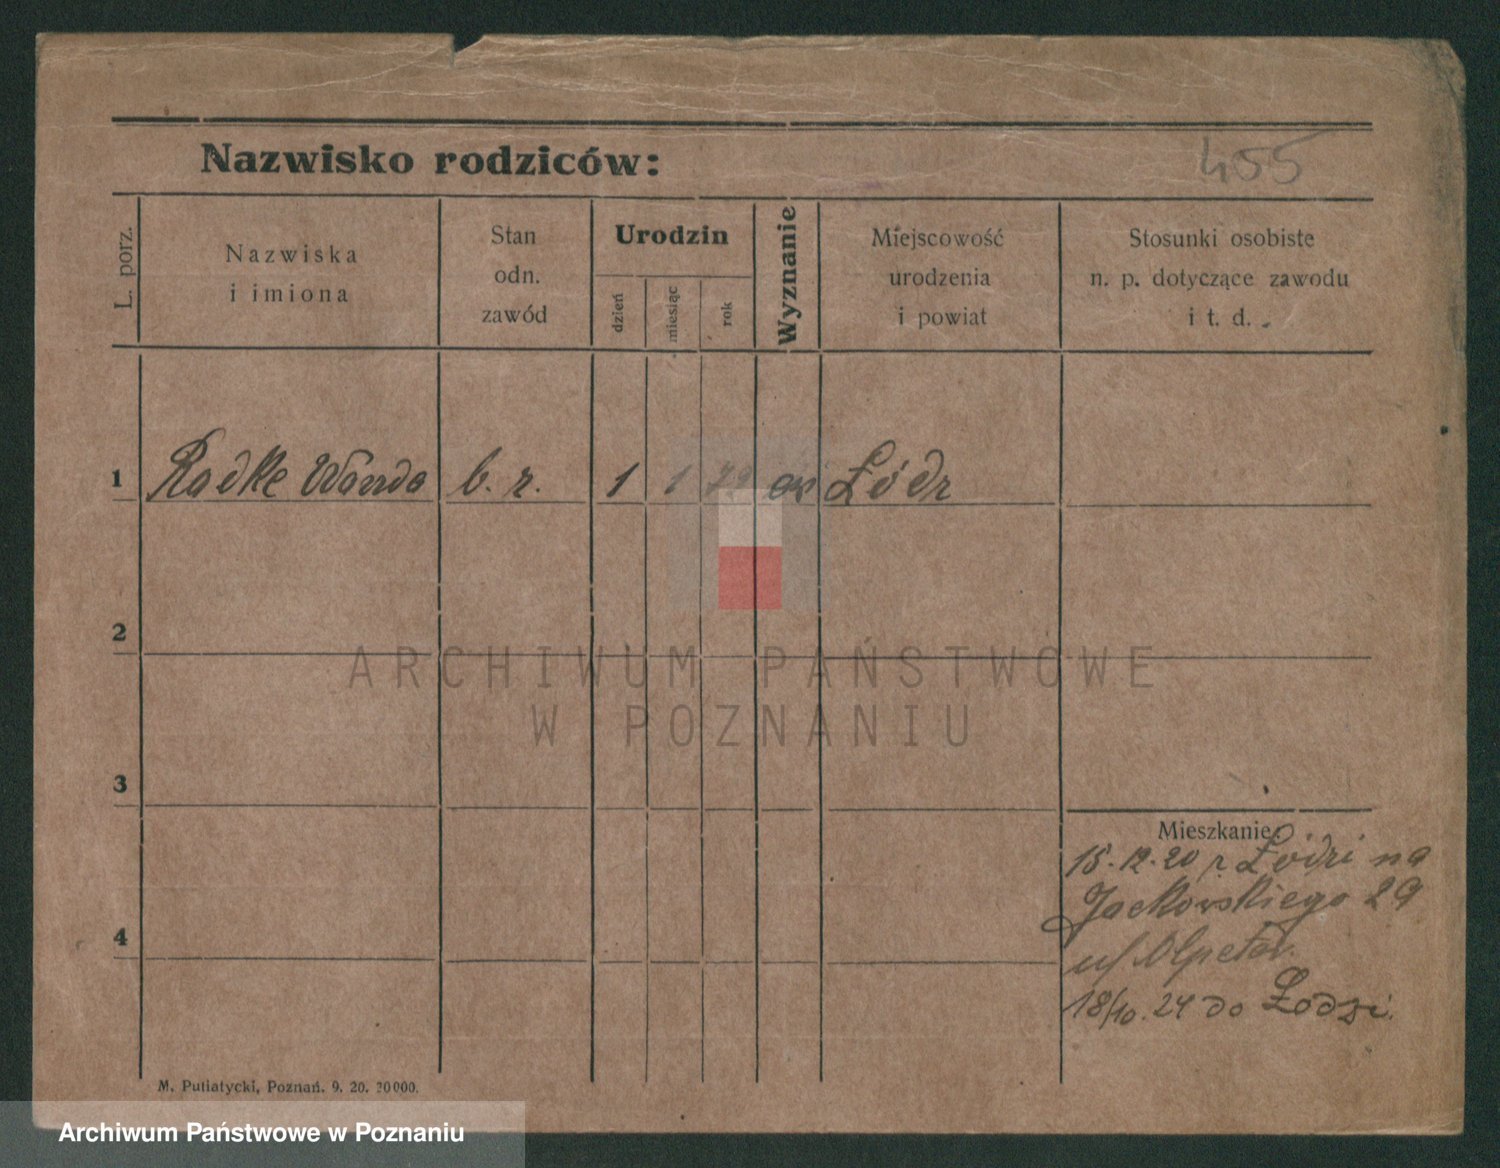 455
Nazwisko rodziców:
L. porz.
Nazwiska
i imiona
Stan
odn.
zawód
Urodzin
dzień
miesiąc
rok
Wyznanie
Miejscowość
urodzenia
i powiat
Stosunki osobiste
n. p. dotyczące zawodu
i t. d.
1 Radke Wanda b. r. 1 1 Łódz
2
3
4
Mieszkanie:
15.12.20 z Łodzi na
Jackowskiego 29
u/
18/10.24 do Łodzi
M. Putiatycki, Poznań. 9. 20. 20000.
ARCHIWUM PAŃSTWOWE
W POZNANIU
Archiwum Państwowe w Poznaniu